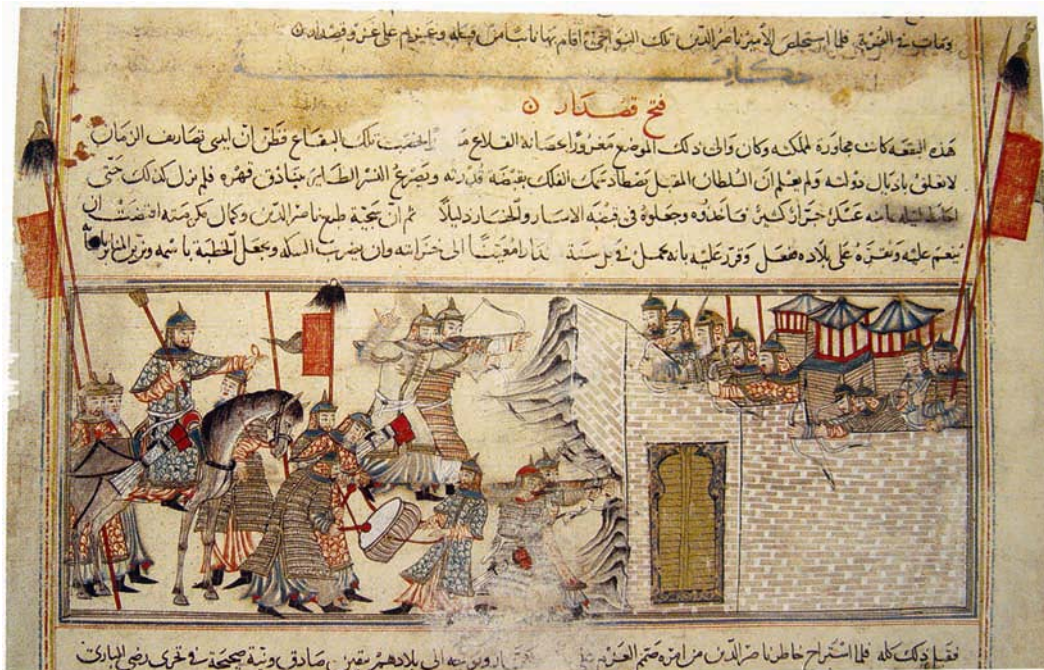 ومات في الغربة فلما استخلص الأمير ناصر الدين تلك النواحي أقام بها نائبا من قبله وعزم على غزو قصدار
حكاية
فتح قصدار
هذه البقعة كانت مجاورة لمملكته وكان والى ذلك الموضع مغرورا بحصانة القلاع تلك البقاع فظن أن أيدي تصاريف الزمان
بأذيال دولته ولم يعلم أن السلطان المقبل يصطاد سمك الفلك بقبضة قدرته ويصرع النسر الطائر ببنادق قهره فلم يزل كذلك حتى
ليلة بأسه عسكر جرار كثير فأخذوه وجعلوه في قبضة الاسار ذليلا ثم أن سجية طبع ناصر الدين وكمال مكرمته اقتضت ان
ينعم عليه ويقره على بلاده ففعل وقرر عليه بأنه يحمل في كل سنة معينا الى خزانته وان يضرب السكة ويجعل الخطبة باسمه ويزين المنابر
فقبل ذلك كله فلما استراح خاطر ناصر الدين من امره صمم العزم الى بلادهم بيقين صادق ونية صحيحة في تحرى رضى البارئ